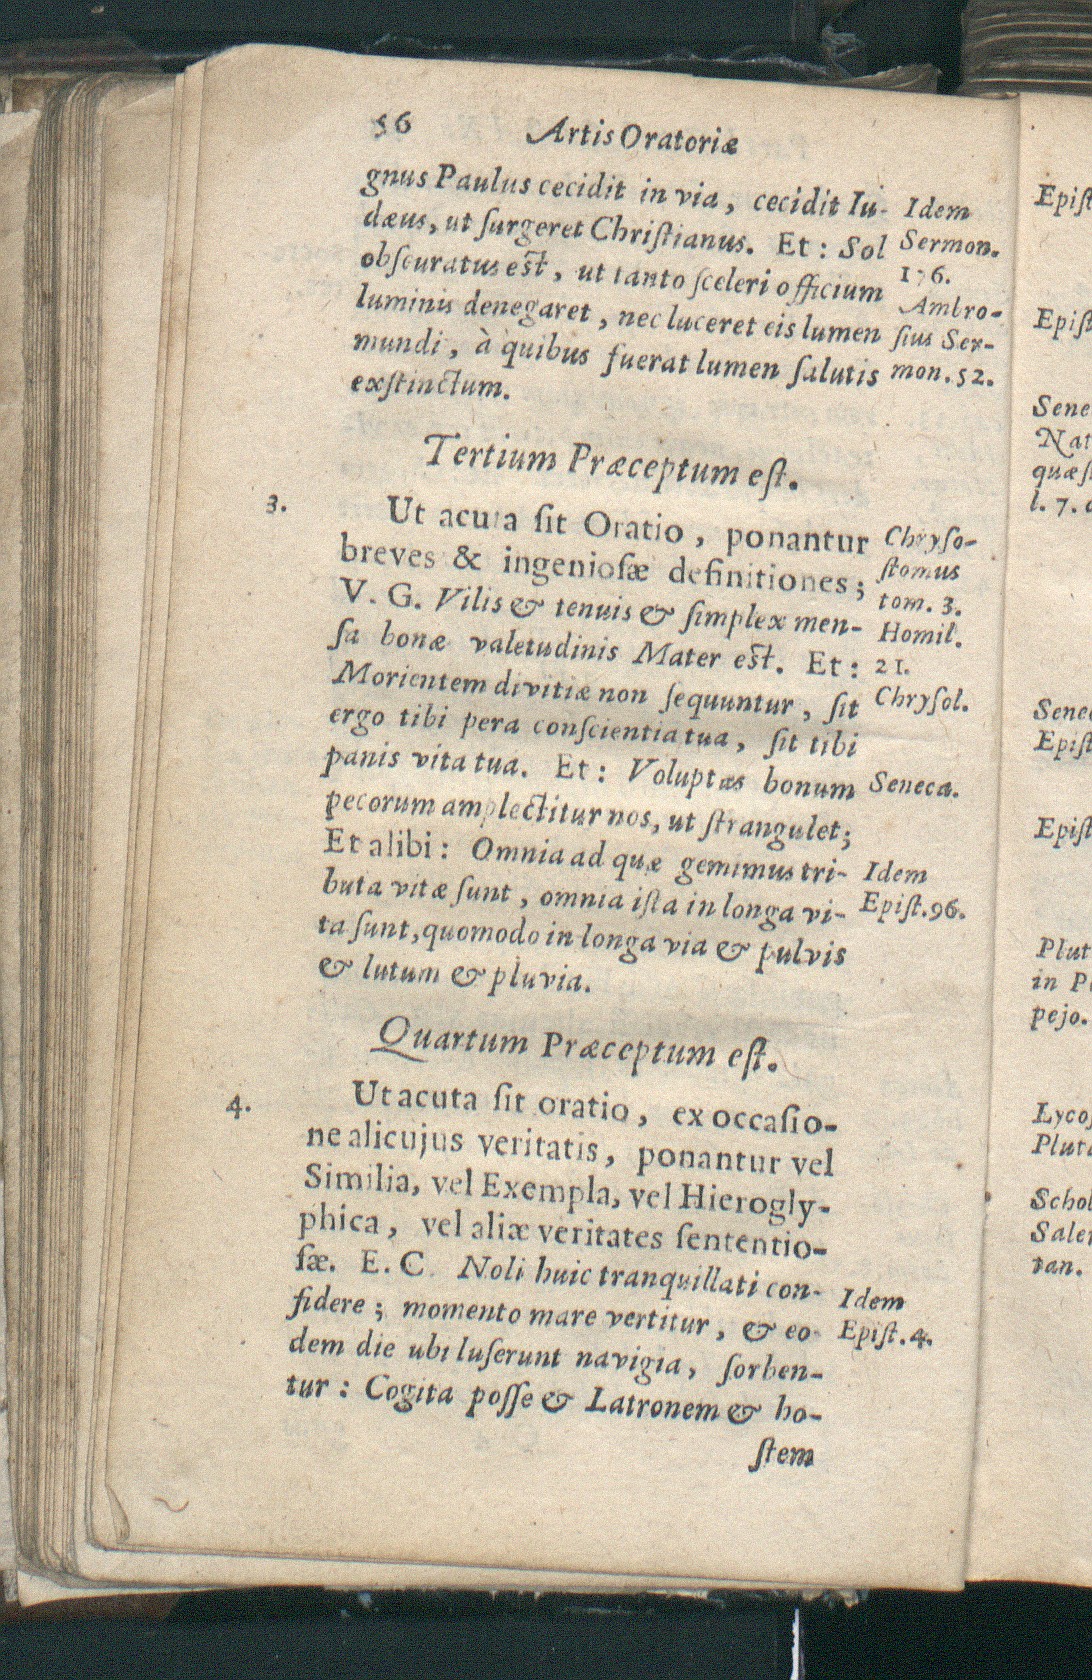 56 Artis Oratoriæ
gnus Paulus cecidit in via, cecidit Iu-
dæus, ut ſurgeret Chriſtianus. Et: Sol
obſcuratus eſt, ut tanto ſceleri officium
luminis denegaret, nec luceret eis lumen
mundi, à quibus fuerat lumen ſalutis
exſtinctum.
Idem
Sermon.
176.
Ambro-
ſius Ser-
mon. 52.
Tertium Præceptum eſt.
3.
Ut acuta ſit Oratio, ponantur
breves & ingenioſæ definitiones;
V. G. Vilis & tenuis & ſimplex men-
ſa bonæ valetudinis Mater eſt. Et:
Morientem divitiæ non ſequuntur, ſit
ergo tibi pera conſcientia tua, ſit tibi
panis vita tua. Et: Voluptas bonum
pecorum amplectitur nos, ut ſtrangulet;
Et alibi: Omnia ad quæ gemimus tri-
buta vitæ ſunt, omnia iſta in longa vi-
ta ſunt, quomodo in longa via & pulvis
& lutum & pluvia.
Chryſo-
ſtomus
tom. 3.
Homil.
21.
Chryſol.
Seneca.
Idem
Epiſt. 96.
Quartum Præceptum eſt.
4.
Ut acuta ſit oratio, ex occaſio-
ne alicujus veritatis, ponantur vel
Similia, vel Exempla, vel Hierogly-
phica, vel aliæ veritates ſententio-
ſæ. E. C. Noli huic tranquillati con-
fidere; momento mare vertitur, & eo-
dem die ubi luſerunt navigia, ſorben-
tur: Cogita poſſe & Latronem & ho-
ſtem
Idem
Epiſt. 4.
Epiſt
Epiſt
Sene
Nat
quæſ
l. 7.
Sene
Epiſt
Epiſt
Plut
in P
pejo.
Lycoſ
Pluta
Schol
Saler
tan.